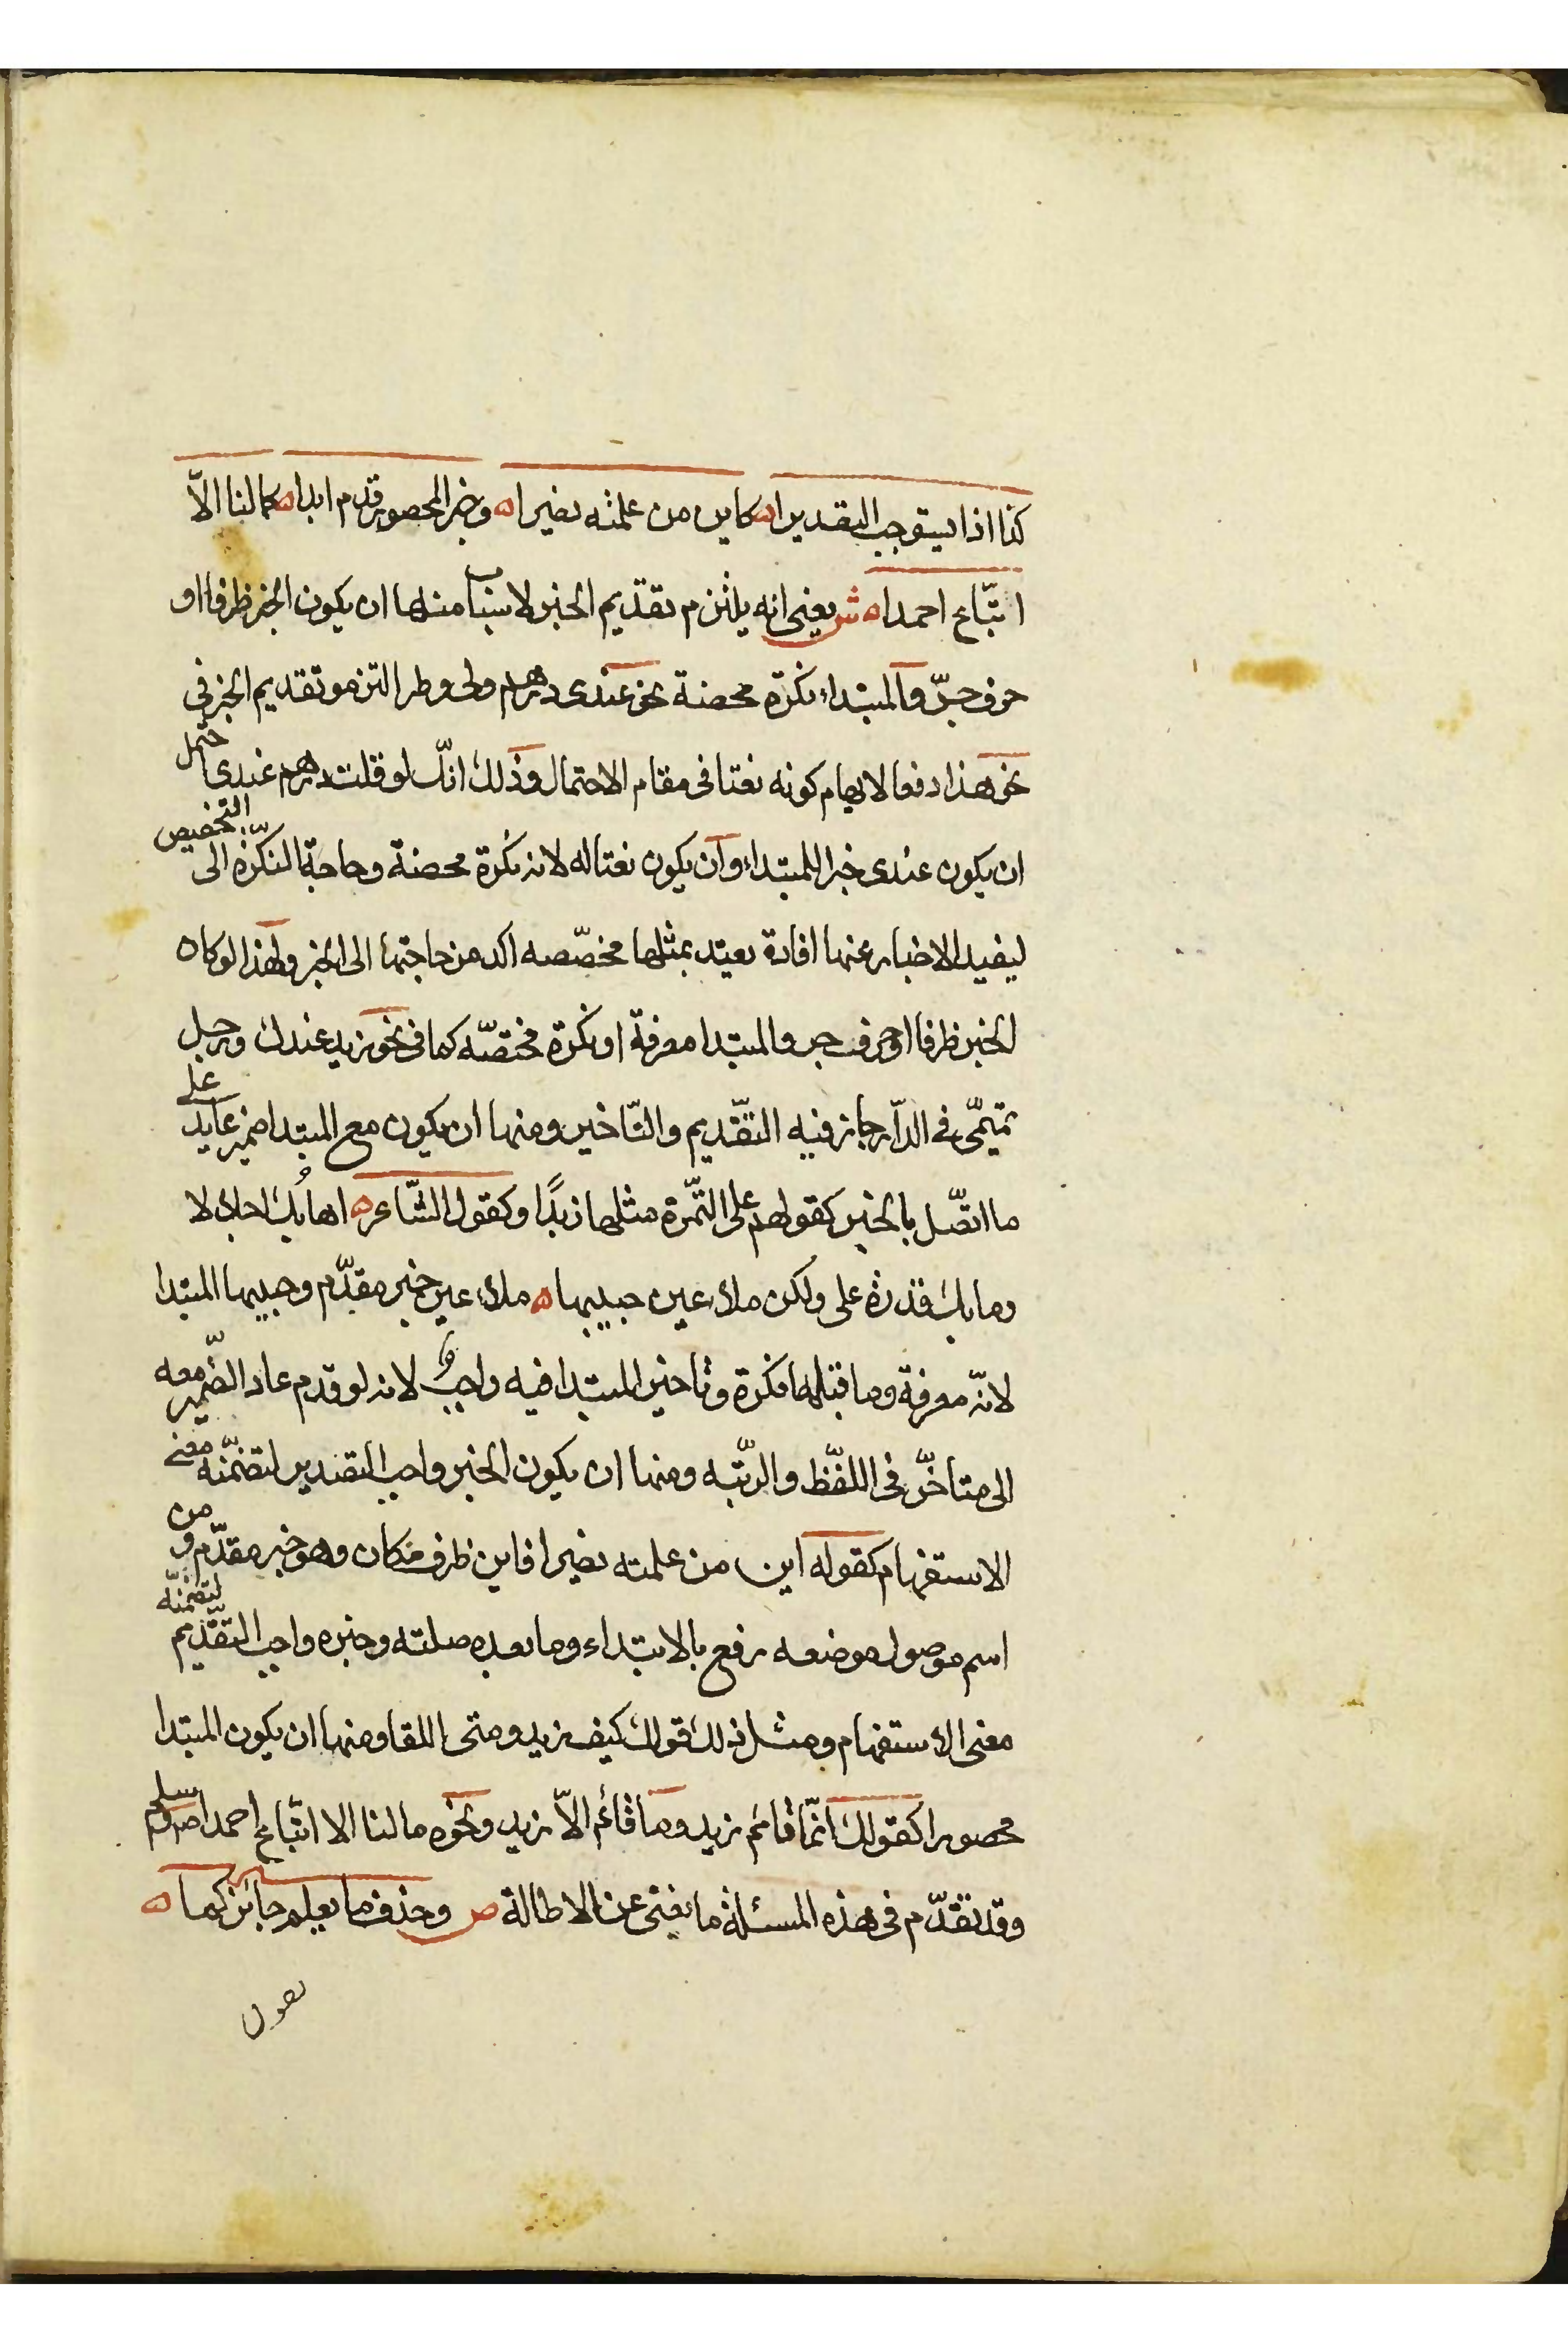 كذا اذا يستوجب التقديرا ه كاين من علمته نصيرا ه وخبر المحصور قدم ابدا ه كما لنا الاّ
اتّباع احمدا ه ش يعني انه يلتزم تقديم الخبر لاسباب منها ان يكون الخبر ظرفا او
حرف جرّ والمبتداء نكرة محضة نحو عندى درهم ولى وطر التزموا تقديم الخبر في
نحو هذا دفعا لايهام كونه نعتا فى مقام الاحتمال وذلك انّك لو قلت درهم عندى احتمل
ان يكون عندى خبرا للمبتداء وان يكون نعتا له لانه نكرة محضة وحاجة النكرة الى التخصيص
ليفيد الاخبار عنها افادة يعتد بمثلها مخصّصه اكد من حاجتها الى الخبر ولهذا لو كان
الخبر ظرفا او حرف جر والمبتدا معرفة او نكرة مختصّه كما فى نحو زيد عندك ورجل
تميمّى فى الدّار جاز فيه التقّديم والتّاخير ومنها ان يكون مع المبتدا ضمير عايد على
ما اتصّل بالخبر كقولهم على التّمرة مثلها زبدًا وكقول الشّاعر ه اهابُك اجلالا
وما بك قدرة على ولكن ملاء عين حبيبها ه ملاء عين خبر مقدّم وحبيبها المبتدا
لانّه معرفة وما قبلها نكرة وتاخير المبتدا فيه واجب لانه لو قدم عاد الضّمير معه
الى متاخّر فى اللفّظ والرتّبه ومنها ان يكون الخبر واجب التصدير لتضمنّه معنى
الاستفهام كقوله اين من علمته نصيرا فاين ظرف مكان وهو خبر مقدّم ومن
اسم موصول موضعه رفع بالابتداء وما بعده صلته وخبره واجب التقّديم لتضمنّه
معنى الاستفهام ومثل ذلك قولك كيف زيد ومتى اللقا ومنها ان يكون المبتدا
محصورا كقولك انمّا قائم زيد وما قائم الاّ زيد ونحوه ما لنا الا اتّباع احمدا صلى وسلم
وقد تقدّم فى هذه المسئلة ما يغنى عن الاطالة ص وحذف ما يعلم جائز كما ه
تقول